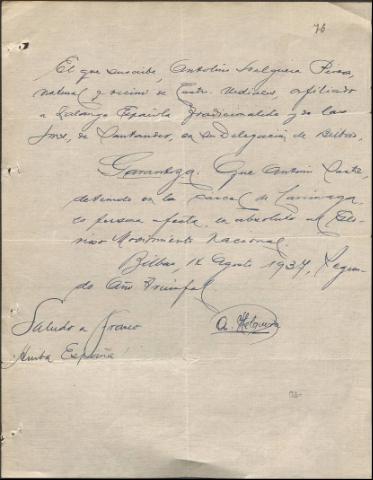 76
El que suscribe, Antolín Helguera Perea,
natural y vecino de Castro Urdiales, afiliado
a Falange Española Tradicionalista y de las
Jons, de Santander, en su Delegación de Bilbao,
Garantiza: Que Antonio
detenido en la carcel de Larrinaga
es persona afecta en absoluto al Glo-
rioso Movimiento Nacional.
Bilbao, 12 Agosto 1937, Segun-
do Año Triunfal
Saludo a Franco
Arriba España
A. Helguera